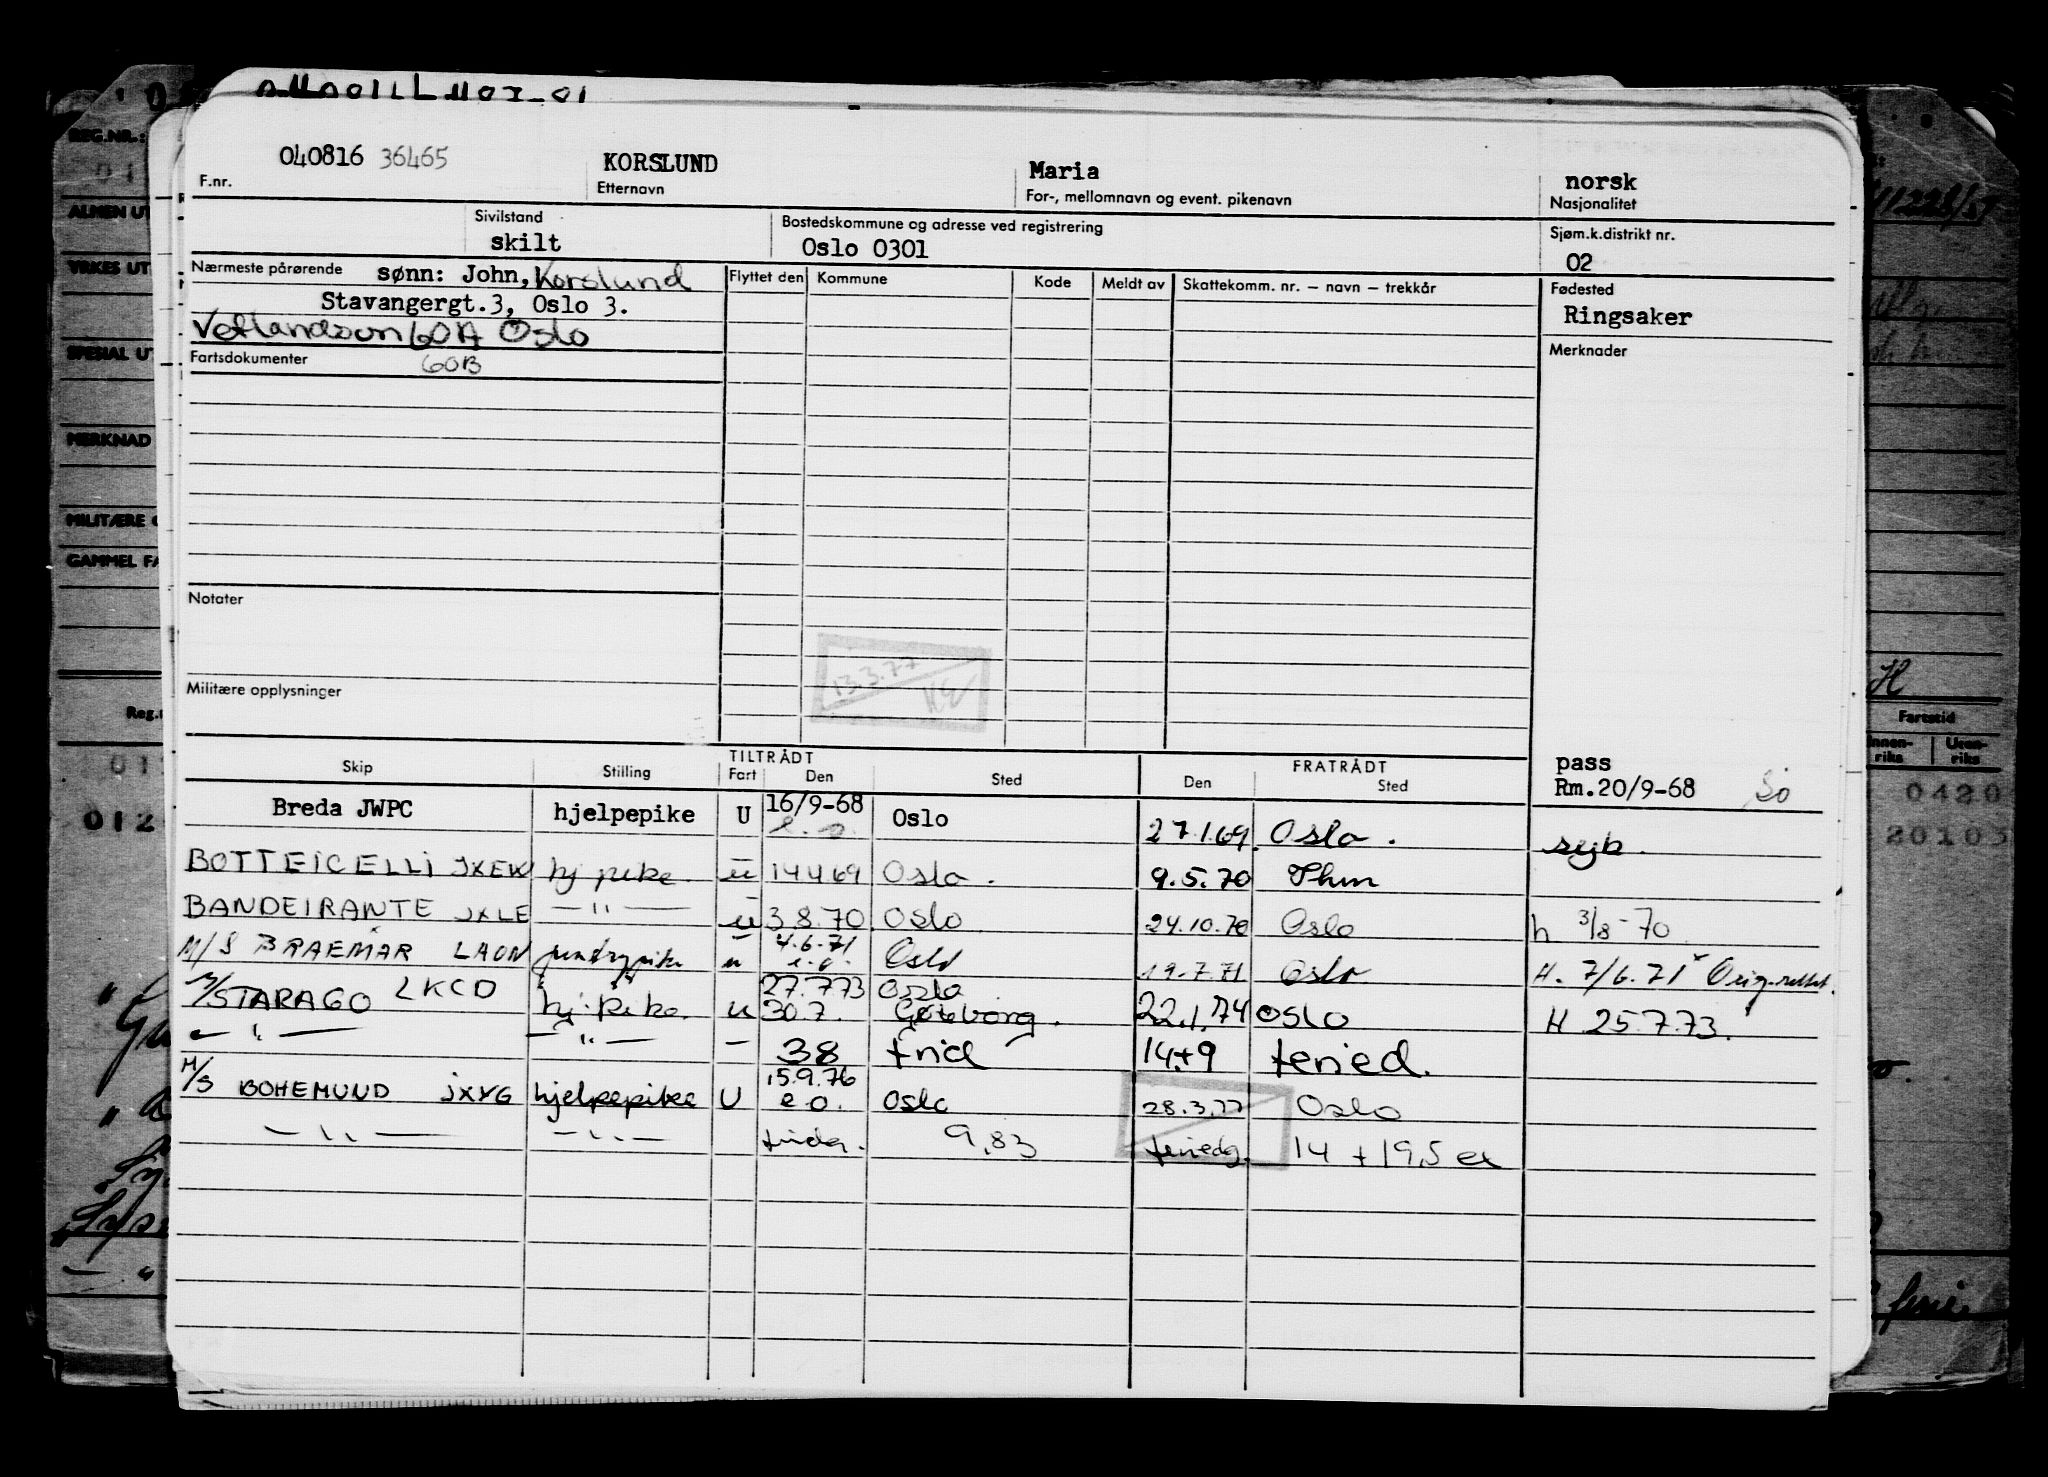 040816 36465 KORSLUND Maria norsk
F.nr. Etternavn For-, mellomnavn og event. pikenavn Nasjonalitet
Sivilstand Bostedskommune og adresse ved registrering Sjøm.k.distrikt nr.
skilt Oslo 0301 02
Nærmeste pårørende sønn: John, Korslund Flyttet den Kommune Kode Meldt av Skattekomm. nr. – navn – trekkår Fødested
Stavangergt.3, Oslo 3. Ringsaker
60A Oslo Merknader
Fartsdokumenter 60B
Notater
13.3.77
Militære opplysninger
TILTRÅDT FRATRÅDT pass
Skip Stilling Fart Den Sted Den Sted Rm.20/9-68
Breda JWPC hjelpepike U 16/9-68 Oslo 27.1.69. Oslo.
BOTTEICELLI JXEW hj pike u 14469 Oslo. 9.5.70 Thm
BANDEIRANTE JXLE —"— u 3.8.70 Oslo 24.10.70 Oslo h 3/8-70
M/S BRAEMAR LAON u 4.6.71 e.o. Oslo 19.7.71 Oslo H. 7/6.71
M/STARAGO LKCD hj. pike. u 27.773 Oslo
30.7. Göteborg. 22.1.74 Oslo H 25.7.73.
—"— —"— — 38 frid 14+9 feried.
M/S BOHEMUND JXVG hjelpepike U 15.9.76 e.o. Oslo 28.3.77 Oslo
—"— —"— fridg. 9,83 feriedg. 14 + 19,5
REG.NR.:
ALMEN UT
YRKES UT
SPESIAL UT
MERKNAD
MILITÆRE
GAMMEL FA
Reg.
012
H
Fartstid
Innenriks Utenriks
0420
20103